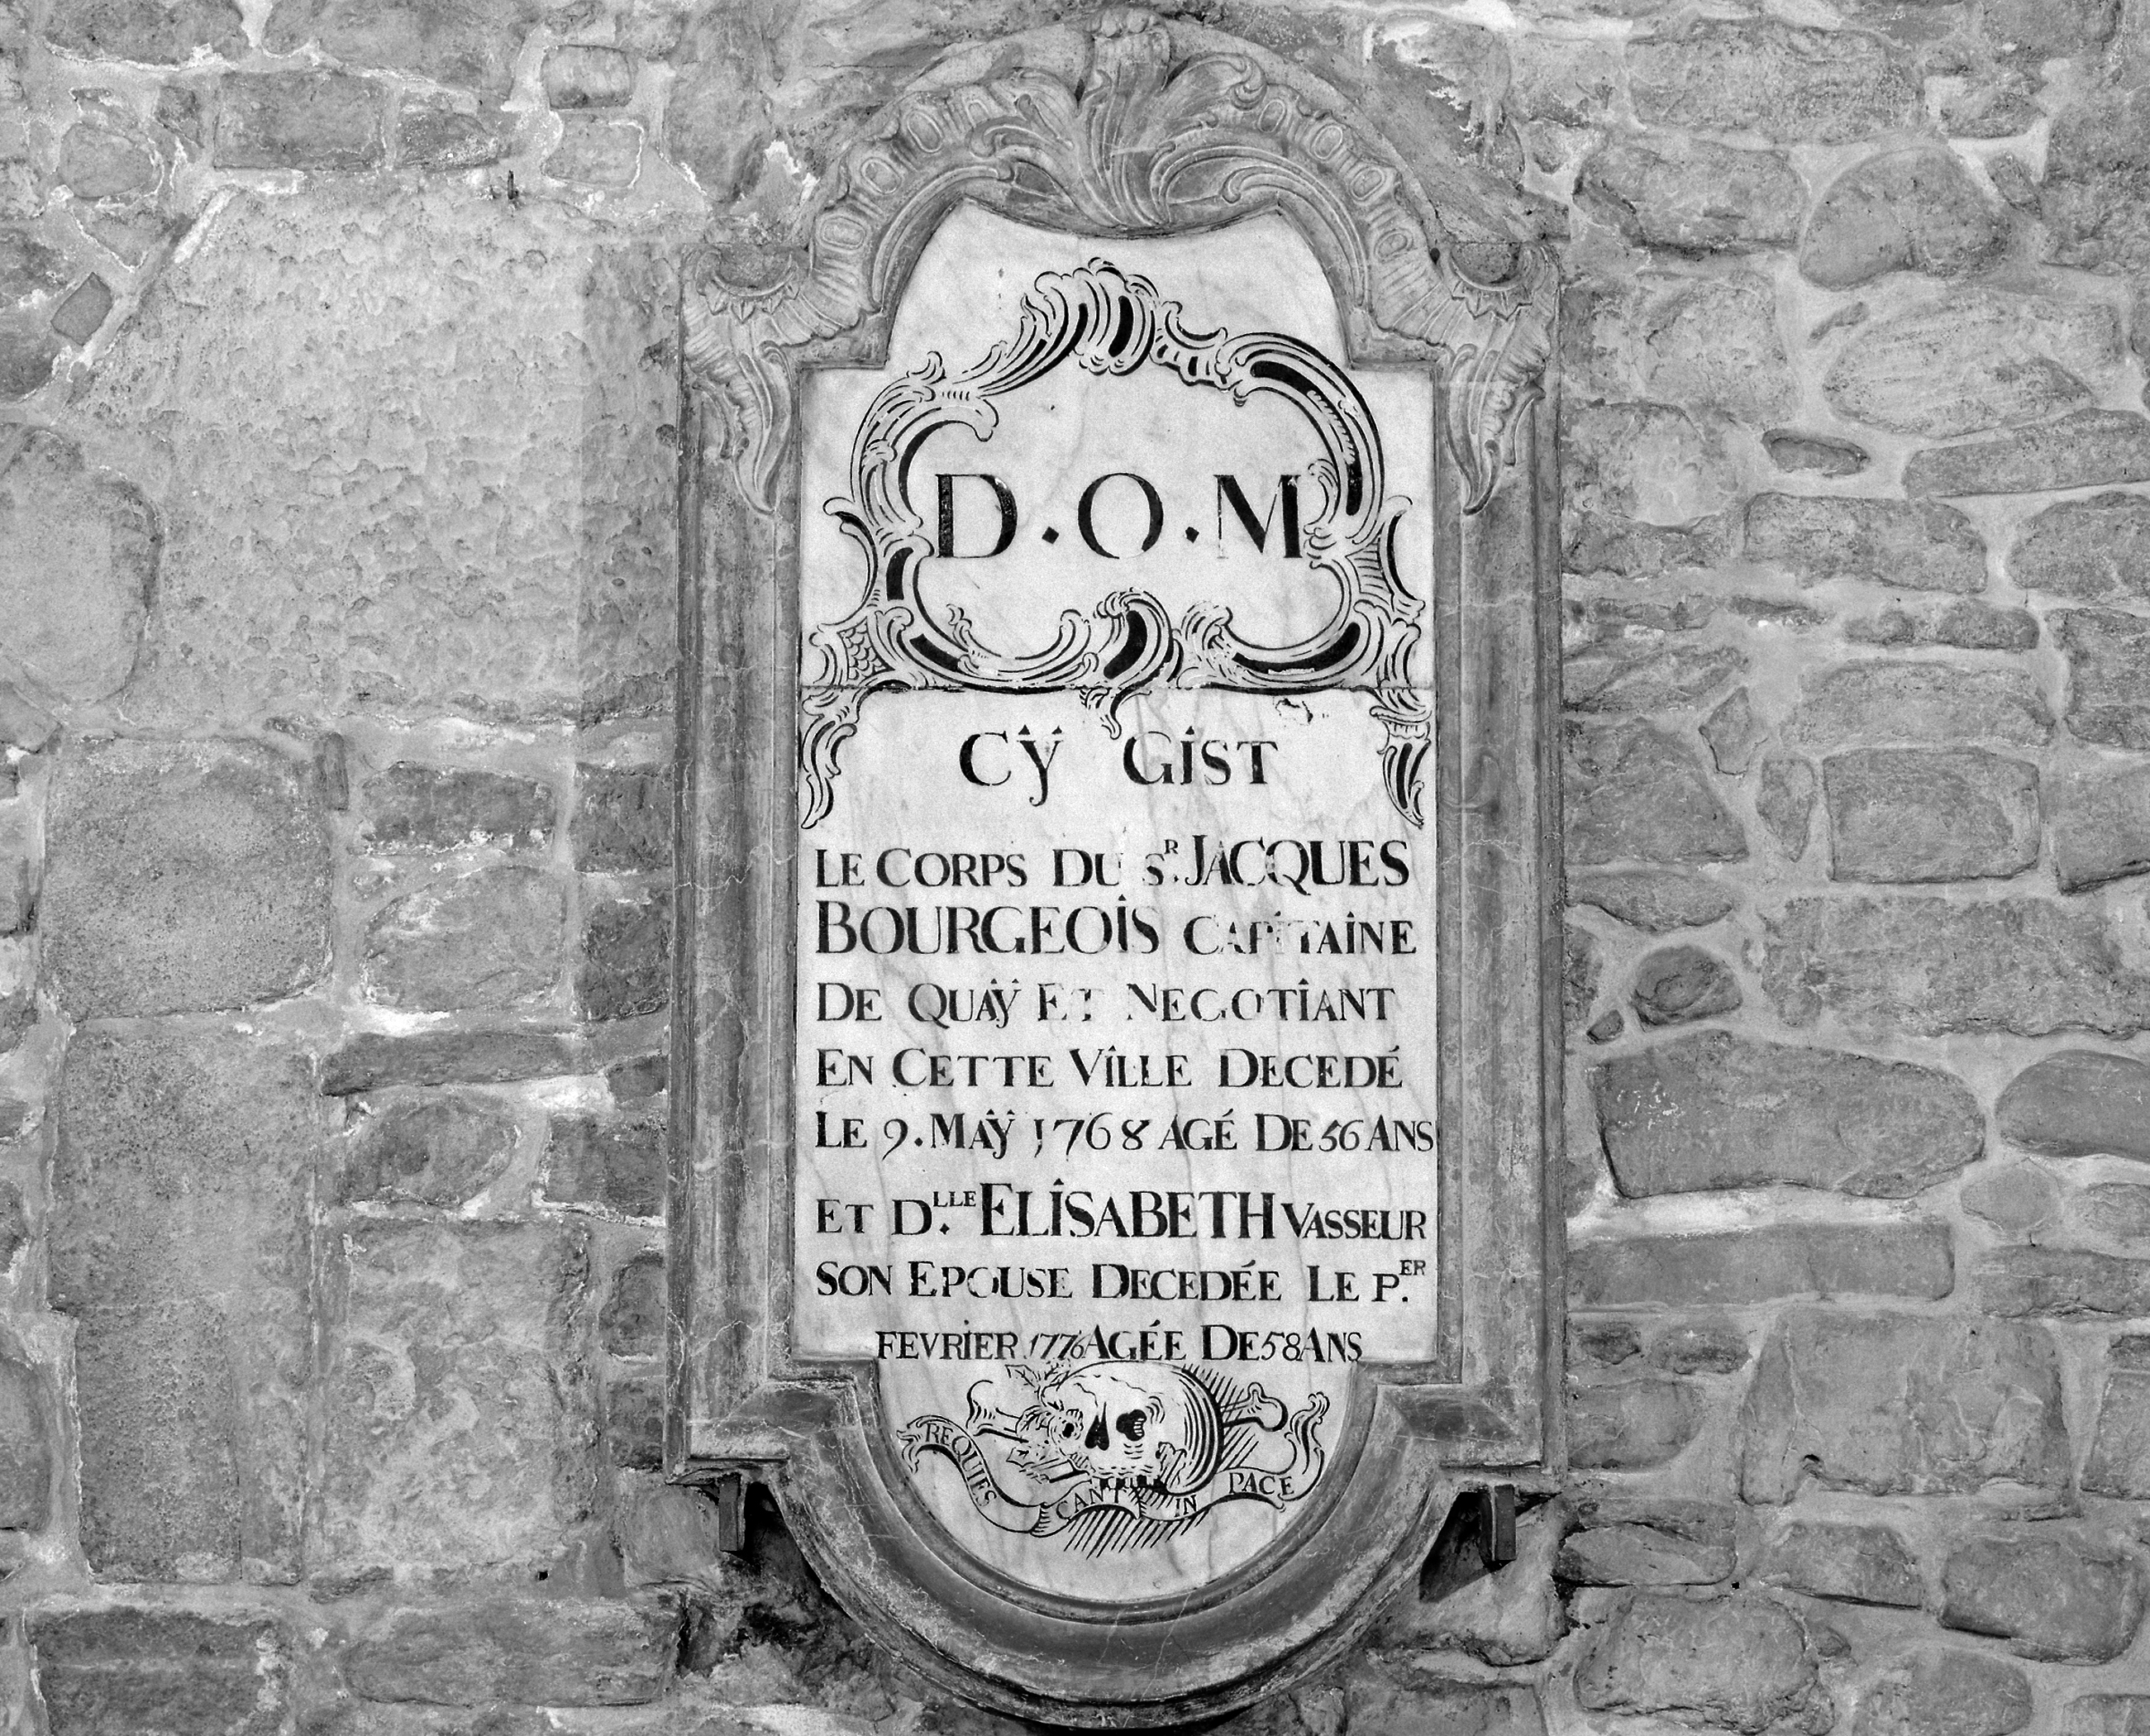 D·O·M
CŸ GIST
LE CORPS DU S.R JACQUES
BOURGEOIS CAPITAINE
DE QUAŸ ET NEGOTIANT
EN CETTE VILLE DECEDÉ
LE 9. MAŸ 1768 AGÉ DE 56 ANS
ET D.LLE ELISABETH VASSEUR
SON EPOUSE DECEDÉE LE P.ER
FEVRIER 1776 AGÉE DE 58 ANS
REQUIES CANT IN PACE